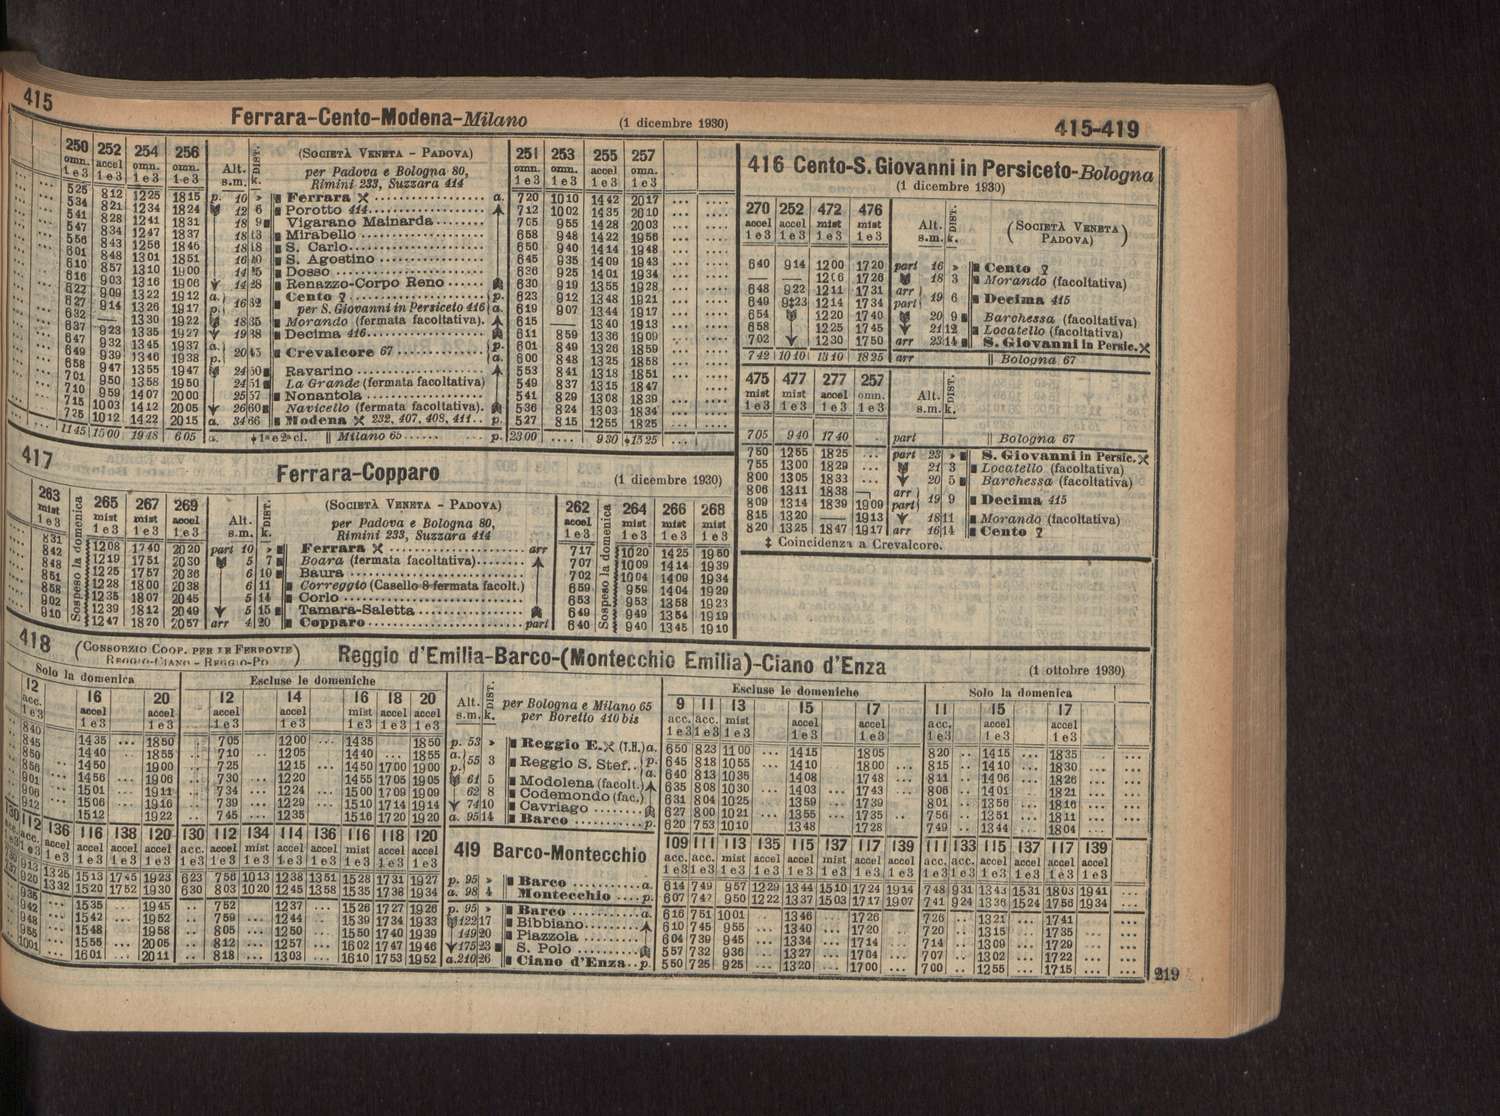 415
Ferrara-Cento-Modena-Milano (1 dicembre 1930)
415-419
250 252 254 256
omn. accel omn. omn.
1 e 3 1 e 3 1 e 3 1 e 3
Alt. s.m. DIST. k.
(SOCIETÀ VENETA - PADOVA)
per Padova e Bologna 80,
Rimini 233, Suzzara 414
251 253 255 257
omn. omn. accel omn.
1 e 3 1 e 3 1 e 3 1 e 3
525 812 1225 1815 p. 10 » Ferrara a. 720 1010 1442 2017
534 821 1234 1824 12 6 Porotto 414 712 1002 1435 2010
541 828 1241 1831 18 9 Vigarano Mainarda 705 955 1428 2003
547 834 1247 1837 Mirabello 658 948 1422 1956
556 843 1256 1846 S. Carlo 650 940 1414 1948
601 848 1301 1851 S. Agostino 645 935 1409 1943
610 857 1310 1900 Dosso 636 925 1401 1934
616 903 1316 1906 14 28 Renazzo-Corpo Reno 630 919 1355 1928
622 909 1322 1912 a. 16 32 Cento p. 623 912 1348 1921
627 914 1326 1917 p. per S. Giovanni in Persiceto 416 a. 619 907 1344 1917
632 — 1330 1922 18 35 Morando (fermata facoltativa). 615 — 1340 1913
637 923 1335 1927 19 38 Decima 416 611 859 1336 1909
647 932 1345 1937 a. 20 45 Crevalcore 67 p. 601 849 1326 1859
649 939 1346 1938 p. a. 600 848 1325 1858
658 947 1355 1947 24 50 Ravarino 553 841 1318 1851
701 950 1358 1950 24 51 La Grande (fermata facoltativa) 549 837 1315 1847
710 959 1407 2000 25 57 Nonantola 541 829 1308 1839
715 1003 1412 2005 26 60 Navicello (fermata facoltativa). 536 824 1303 1834
725 1012 1422 2015 a. 34 66 Modena 232, 407, 408, 411 p. 527 815 1255 1825
1145 1500 1948 605 a. ‡ 1ª e 2ª cl. || Milano 65 p. 2300 .... 930 ‡1525
416 Cento-S. Giovanni in Persiceto-Bologna
(1 dicembre 1930)
270 252 472 476
accel accel mist mist
1 e 3 1 e 3 1 e 3 1 e 3
Alt. s.m. DIST. k.
(SOCIETÀ VENETA PADOVA)
640 914 1200 1720 part 16 » Cento
1206 1726 18 3 Morando (facoltativa)
648 922 1211 1731 arr 19 6 Decima 415
649 9‡23 1214 1734 part
654 1220 1740 20 9 Barchessa (facoltativa)
658 1225 1745 21 12 Locatello (facoltativa)
702 1230 1750 arr 23 14 S. Giovanni in Persic.
742 1010 1310 1825 arr || Bologna 67
475 477 277 257
mist mist accel omn.
1 e 3 1 e 3 1 e 3 1 e 3
Alt. s.m. DIST. k.
705 940 1740 .. part || Bologna 67
750 1255 1825 ... part 23 » S. Giovanni in Persic.
755 1300 1829 ... 21 3 Locatello (facoltativa)
800 1305 1833 ... 20 5 Barchessa (facoltativa)
806 1311 1838 arr 19 9 Decima 415
809 1314 1839 1909 part
815 1320 — 1913 18 11 Morando (facoltativa)
820 1325 1847 1917 arr 16 14 Cento
‡ Coincidenza a Crevalcore.
417
Ferrara-Copparo
(1 dicembre 1930)
263 265 267 269
mist mist mist accel
1 e 3 1 e 3 1 e 3 1 e 3
Sospeso la domenica
Alt. s.m. DIST. k.
(SOCIETÀ VENETA - PADOVA)
per Padova e Bologna 80,
Rimini 233, Suzzara 414
262 264 266 268
accel mist mist mist
1 e 3 1 e 3 1 e 3 1 e 3
Sospeso la domenica
831 1208 1740 2020 part 10 » Ferrara arr 717 1020 1425 1950
842 1219 1751 2030 5 7 Boara (fermata facoltativa) 707 1009 1414 1939
848 1225 1757 2036 6 10 Baura 702 1004 1409 1934
851 1228 1800 2038 6 11 Correggio (Casello 8 fermata facolt.) 659 959 1404 1929
858 1235 1807 2045 5 14 Corlo 653 953 1358 1923
902 1239 1812 2049 5 15 Tamara-Saletta 649 949 1354 1919
910 1247 1820 2057 arr 4 20 Copparo part 640 940 1345 1910
418
(CONSORZIO COOP. PER LE FERROVIE
REGGIO-CIANO - REGGIO-PO)
Reggio d'Emilia-Barco-(Montecchio Emilia)-Ciano d'Enza
(1 ottobre 1930)
Solo la domenica
Escluse le domeniche
Escluse le domeniche
Solo la domenica
12 16 20 12 14 16 18 20
acc. accel accel accel accel mist accel accel
1 e 3 1 e 3 1 e 3 1 e 3 1 e 3 1 e 3 1 e 3 1 e 3
Alt. s.m. DIST. k.
per Bologna e Milano 65
per Boretto 410 bis
9 11 13 15 17 11 15 17
acc. acc. mist accel accel acc. accel accel
1 e 3 1 e 3 1 e 3 1 e 3 1 e 3 1 e 3 1 e 3 1 e 3
840 1435 ... 1850 705 1200 1435 1850 p. 53 » Reggio E. (T.H.) a. 650 823 1100 1415 1805 820 1415 1835
845 1440 1855 710 1205 1440 ... 1855 a. 55 3 Reggio S. Stef. p. 645 818 1055 1410 1800 815 1410 1830
850 1450 1900 725 1215 1450 1700 1900 p. a. 640 813 1035 1408 1748 811 1406 1826
856 1456 1906 730 1220 1455 1705 1905 61 5 Modolena (facolt.) 635 808 1030 1403 1743 806 1401 1821
901 1501 1911 734 1224 1500 1709 1909 62 8 Codemondo (fac.) 631 804 1025 1359 1739 801 1356 1816
906 1506 1916 739 1229 1510 1714 1914 74 10 Cavriago 627 800 1021 1355 1735 756 1351 1811
912 1512 1922 745 1235 1516 1720 1920 a. 95 14 Barco p. 620 753 1010 1348 1728 749 1344 1804
112 136 116 138 120 130 112 134 114 136 116 118 120
acc. accel accel accel accel acc. accel mist accel accel mist accel accel
419 Barco-Montecchio
109 111 113 135 115 137 117 139 111 133 115 137 117 139
acc. acc. mist accel accel mist accel accel acc. acc. accel accel accel accel
913 1325 1513 1745 1923 623 756 1013 1238 1351 1528 1731 1927 p. 95 » Barco a. 614 749 957 1229 1344 1510 1724 1914 748 931 1343 1531 1803 1941
920 1332 1520 1752 1930 630 803 1020 1245 1358 1535 1738 1934 a. 98 4 Montecchio p. 607 742 950 1222 1337 1503 1717 1907 741 924 1336 1524 1756 1934
935 1535 1945 752 1237 1526 1727 1926 p. 95 » Barco a. 616 751 1001 1346 1726 726 1321 1741
942 1542 1952 759 1244 1539 1734 1933 122 17 Bibbiano 610 745 955 1340 1720 720 1315 1735
948 1548 1958 805 1250 1550 1740 1939 149 20 Piazzola 604 739 945 1334 1714 714 1309 1729
955 1555 2005 812 1257 1602 1747 1946 175 23 S. Polo 557 732 936 1327 1704 707 1302 1722
1001 1601 2011 818 1303 1610 1753 1952 a. 210 26 Ciano d'Enza p. 550 725 925 1320 1700 700 1255 1715
219